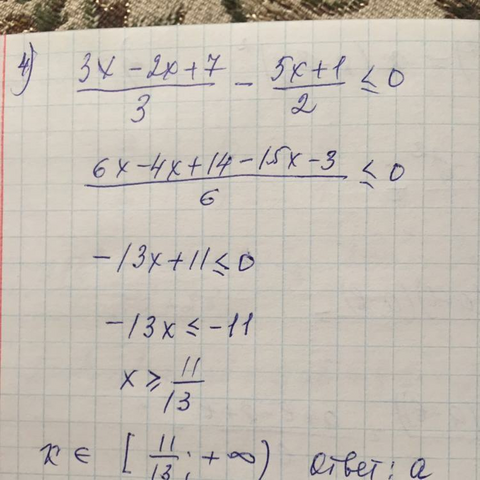 4) (3x - 2x + 7)/3 - (5x + 1)/2 ≤ 0
(6x - 4x + 14 - 15x - 3)/6 ≤ 0
-13x + 11 ≤ 0
-13x ≤ -11
x ≥ 11/13
x ∈ [11/13; +∞) Ответ: а